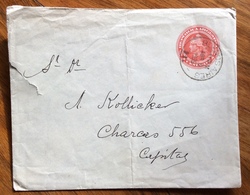 Sr Dr
A. Kolliaker
Charcas 556
Capital